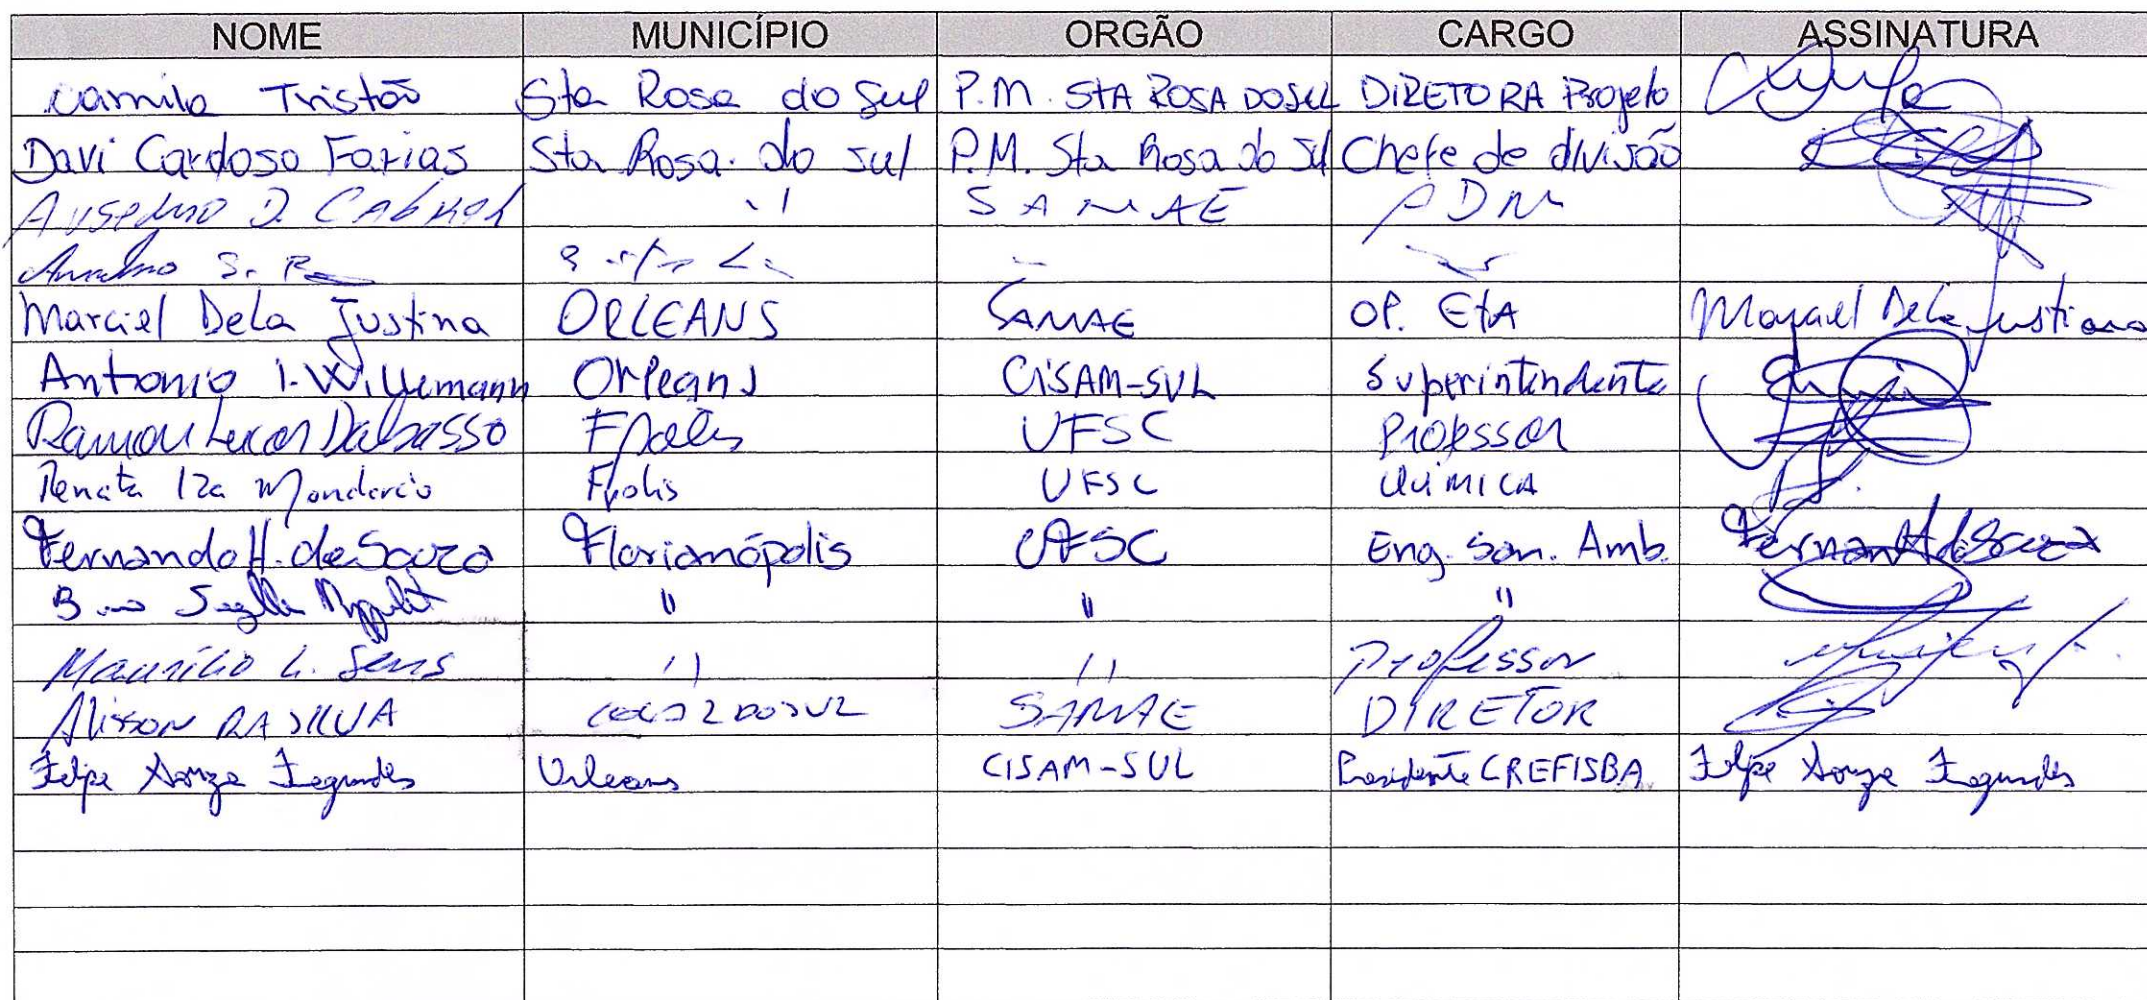 NOME MUNICÍPIO ORGÃO CARGO ASSINATURA
Camila Tristão Sta Rosa do Sul P.M. STA ROSA DO SUL DIRETORA Projeto
Davi Cardoso Farias Sta Rosa do sul P.M. Sta Rosa do Sul Chefe de divisão
Anselmo D. Cabral " SAMAE ADM
Anselmo S.
Marciel Dela Justina ORLEANS SAMAE OP. EtA Marciel Dela Justina
Antonio I. Willemann Orleans CISAM-SUL Superintendente
Ramon Lucas Dalsasso Fpolis UFSC Professor
Renata Iza Mondardo Fpolis UFSC QUIMICA
Fernando H. de Souza Florianópolis UFSC Eng. San. Amb. Fernando H de Souza
" " "
Maurílio L. Sens " " Professor
Alisson DA SILVA SAMAE DIRETOR
Felipe Souza Fagundes Orleans CISAM-SUL Presidente CREFISBA Felipe Souza Fagundes